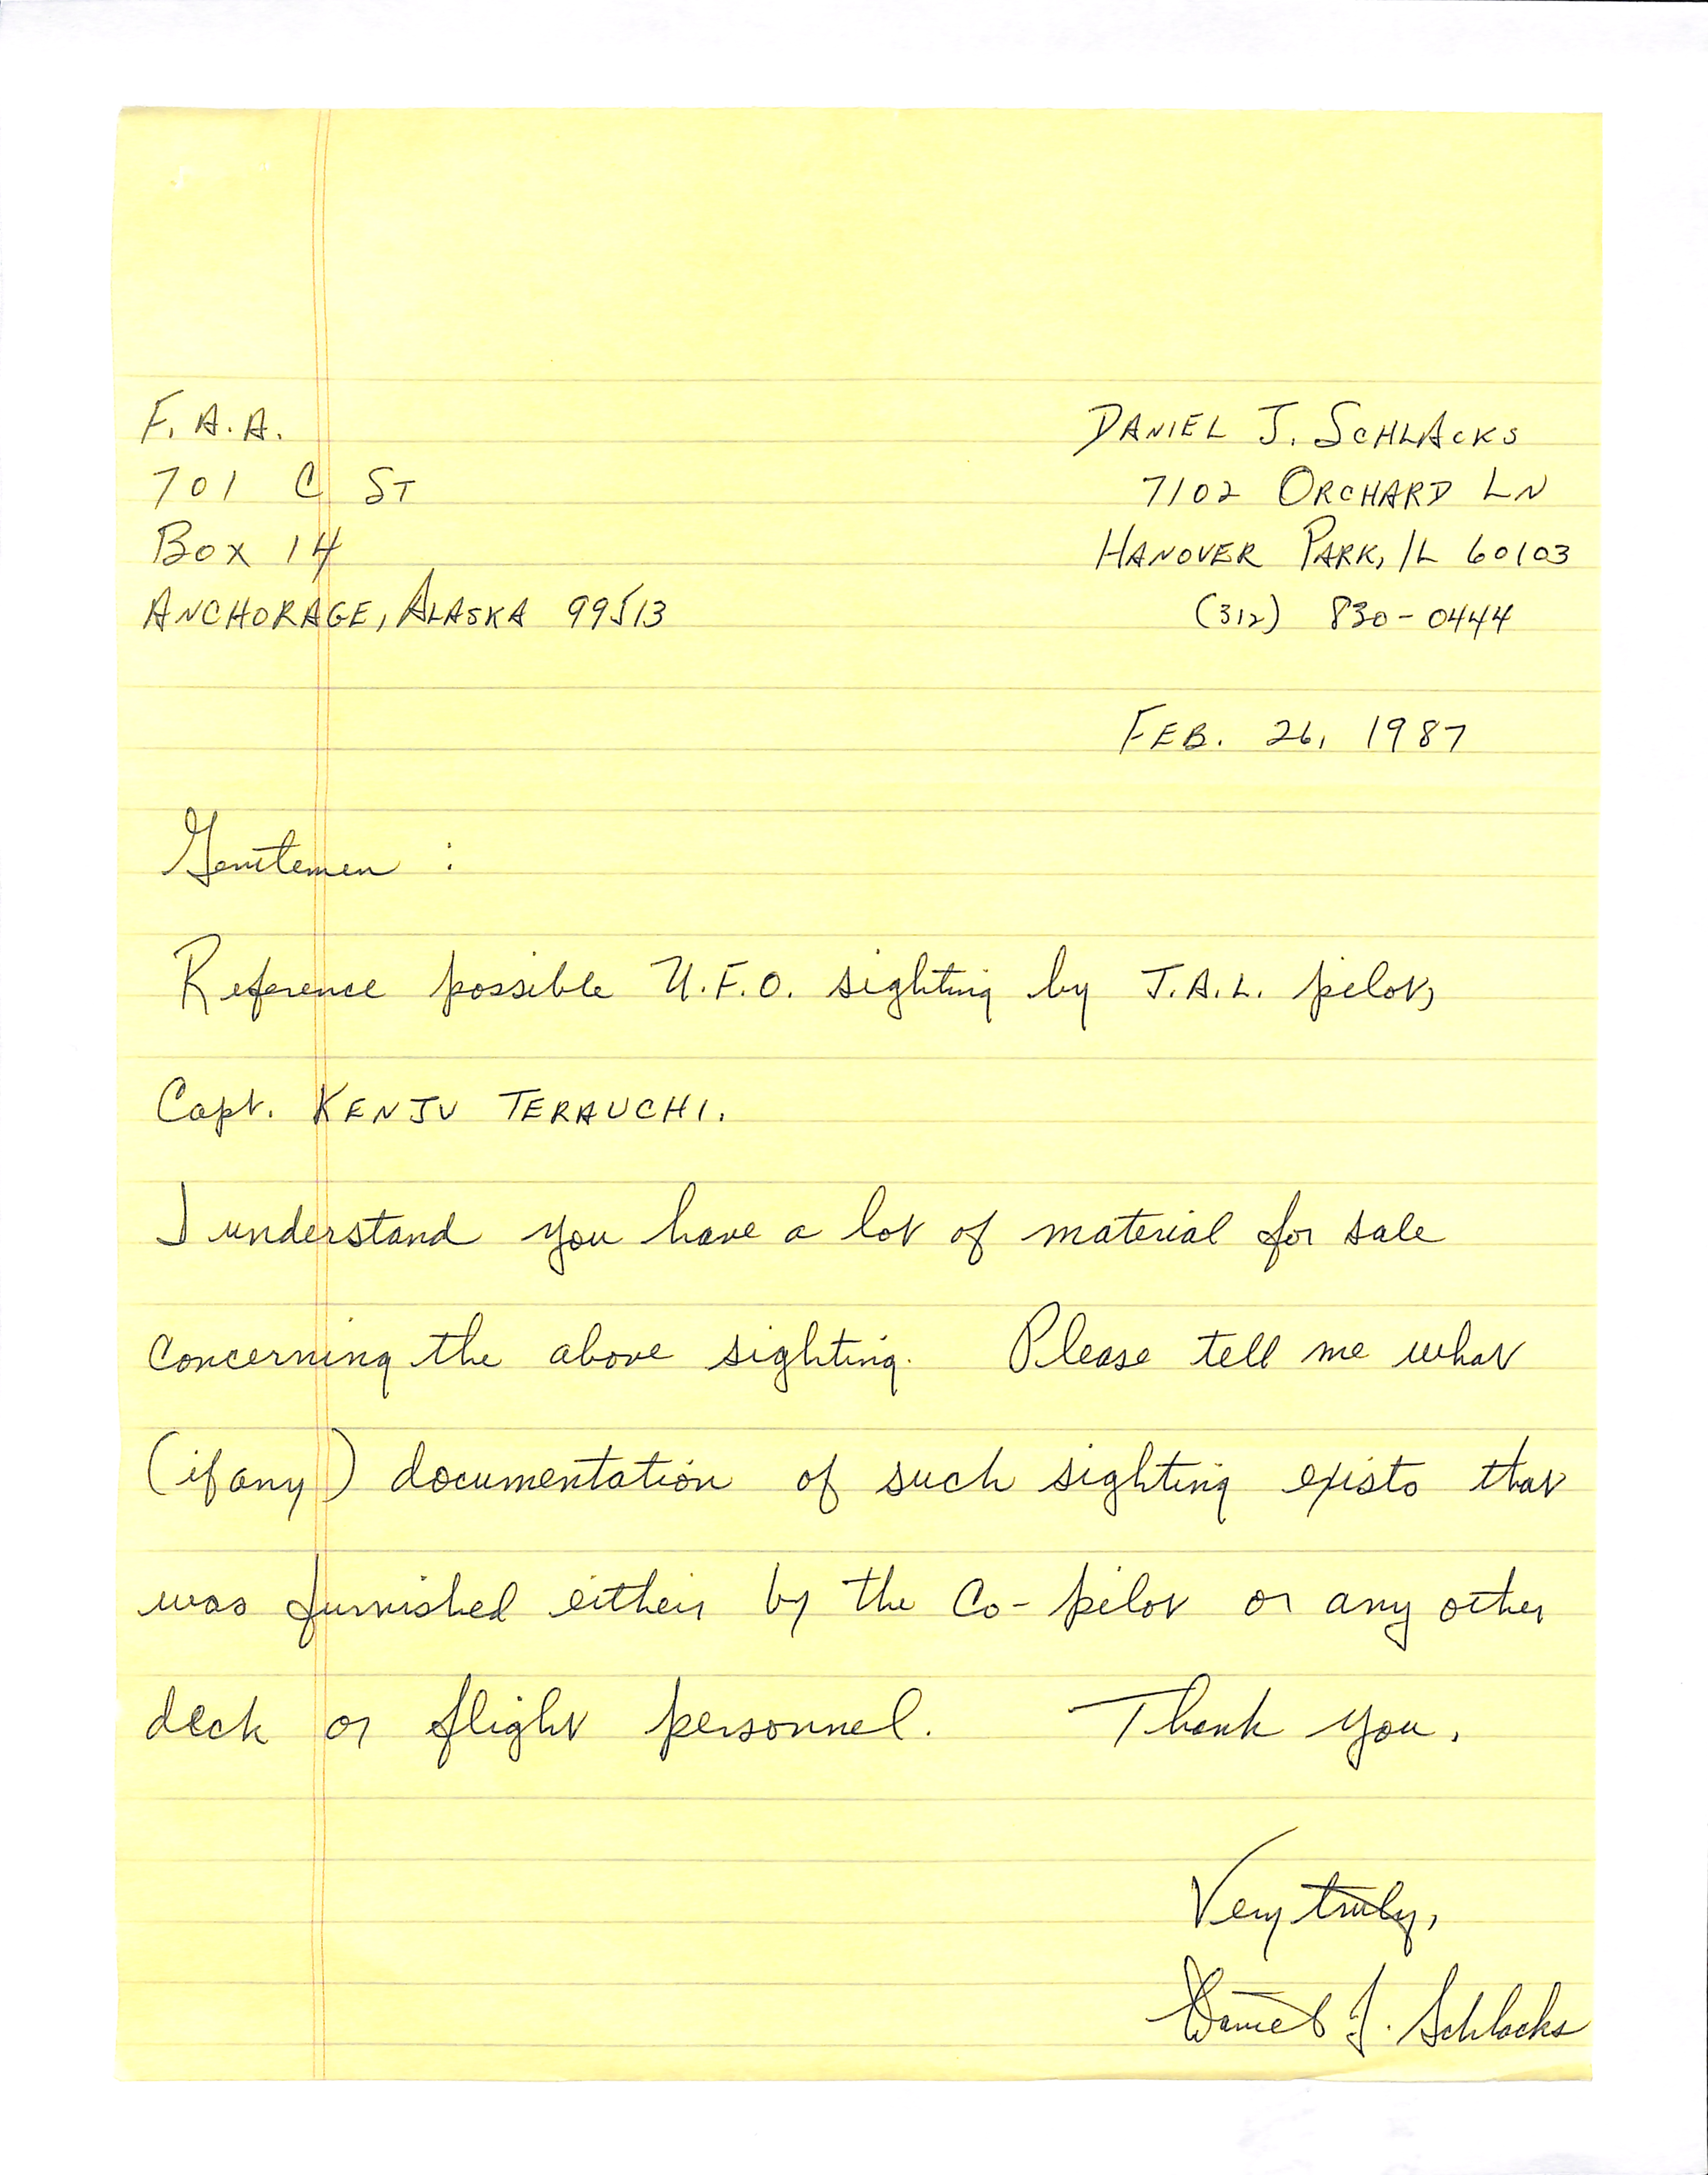 F.A.A.
701 C ST
Box 14
ANCHORAGE, ALASKA 99513
DANIEL J. SCHLACKS
7102 ORCHARD LN
HANOVER PARK, IL 60103
(312) 830-0444
FEB. 26, 1987
Gentlemen :
Reference possible U.F.O. sighting by J.A.L. pilot,
Capt. KENJU TERAUCHI.
I understand you have a lot of material for sale
concerning the above sighting. Please tell me what
(if any) documentation of such sighting exists that
was furnished either by the Co-pilot or any other
deck or flight personnel. Thank you.
Very truly,
Daniel J. Schlacks